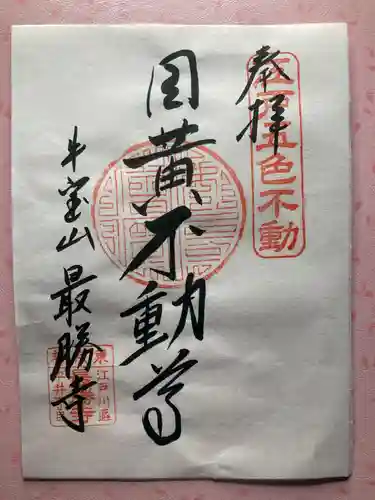 奉拝
江戸五色不動
目黄不動尊
牛宝山 最勝寺
東江戸川區
最勝寺